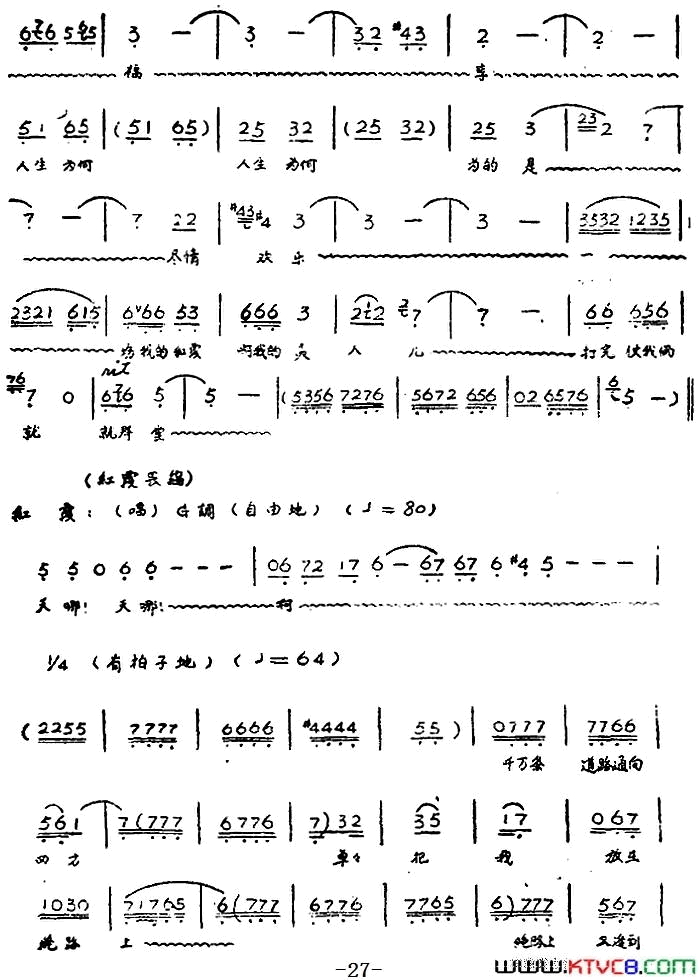 6 7 6 5 6 5 | 3 — | 3 — | 3 2 #4 3 | 2 — | 2 — |
福 享
5 1 6 5 | (5 1 6 5) | 2 5 3 2 | (2 5 3 2) | 2 5 3 | 23 2 7 |
人生为何 人生为何 为的是
7 — | 7 2 2 | #43 #4 3 | 3 — | 3 — | 3532 1235 |
尽情 欢乐
2321 615 | 6 6 6 5 3 | 6 6 6 3 | 2 1 2 7 | 7 — | 6 6 6 5 6 |
我的红霞 啊我的灵人儿 打完仗我俩
76 7 0 | 6 7 6 5 | 5 — | (5356 7276 | 5672 656 | 02 6576 | 6 5 —) ‖
rit
就 就拜堂
(紅霞畏缩)
紅 霞: (唱) G調 (自由地) (♩=80)
5 5 0 6 6 — — — | 06 72 17 6 — 67 67 6 #4 5 — — |
天哪! 天哪! 啊
1/4 (有拍子地) (♩=64)
(2255 | 7777 | 6666 | #4444 | 55) | 0777 | 7766 |
千万条 道路通向
561 | 7(777 | 6776 | 7)32 | 35 | 17 | 067 |
四方 单单 把 我 放在
1030 | 71765 | 6(777 | 6776 | 7765 | 6)777 | 567 |
绝路 上 绝路上 又逢到
-27-
www.KTVC8.com